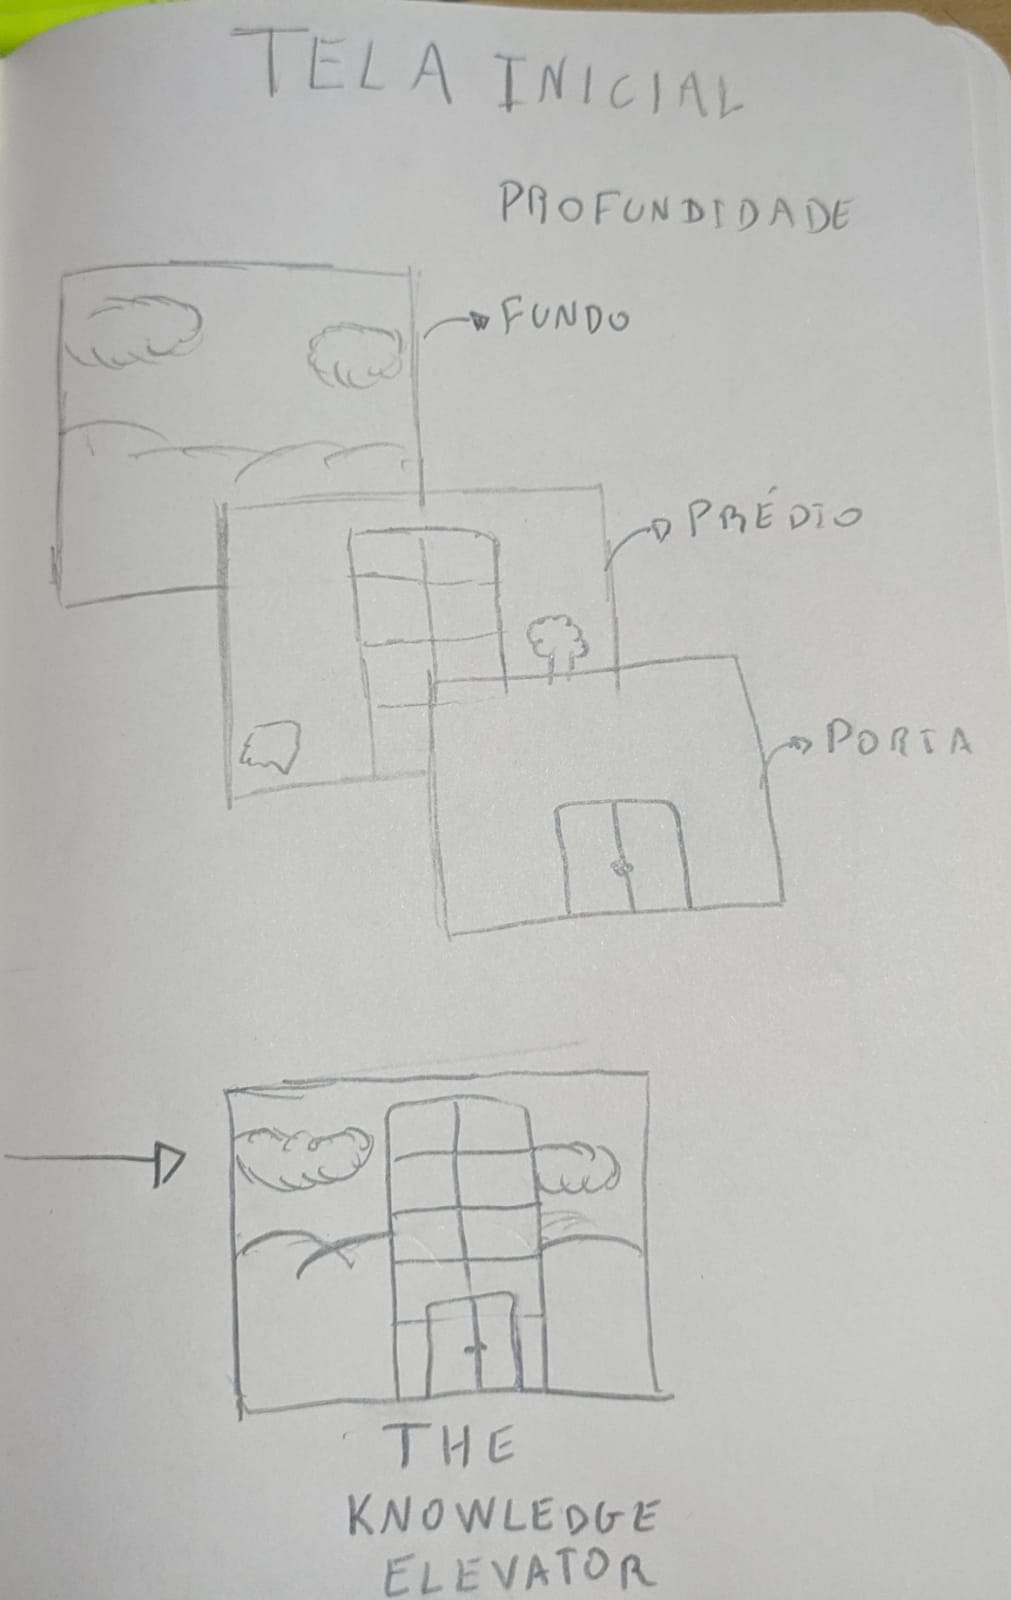 TELA INICIAL
PROFUNDIDADE
FUNDO
PRÉDIO
PORTA
THE
KNOWLEDGE
ELEVATOR